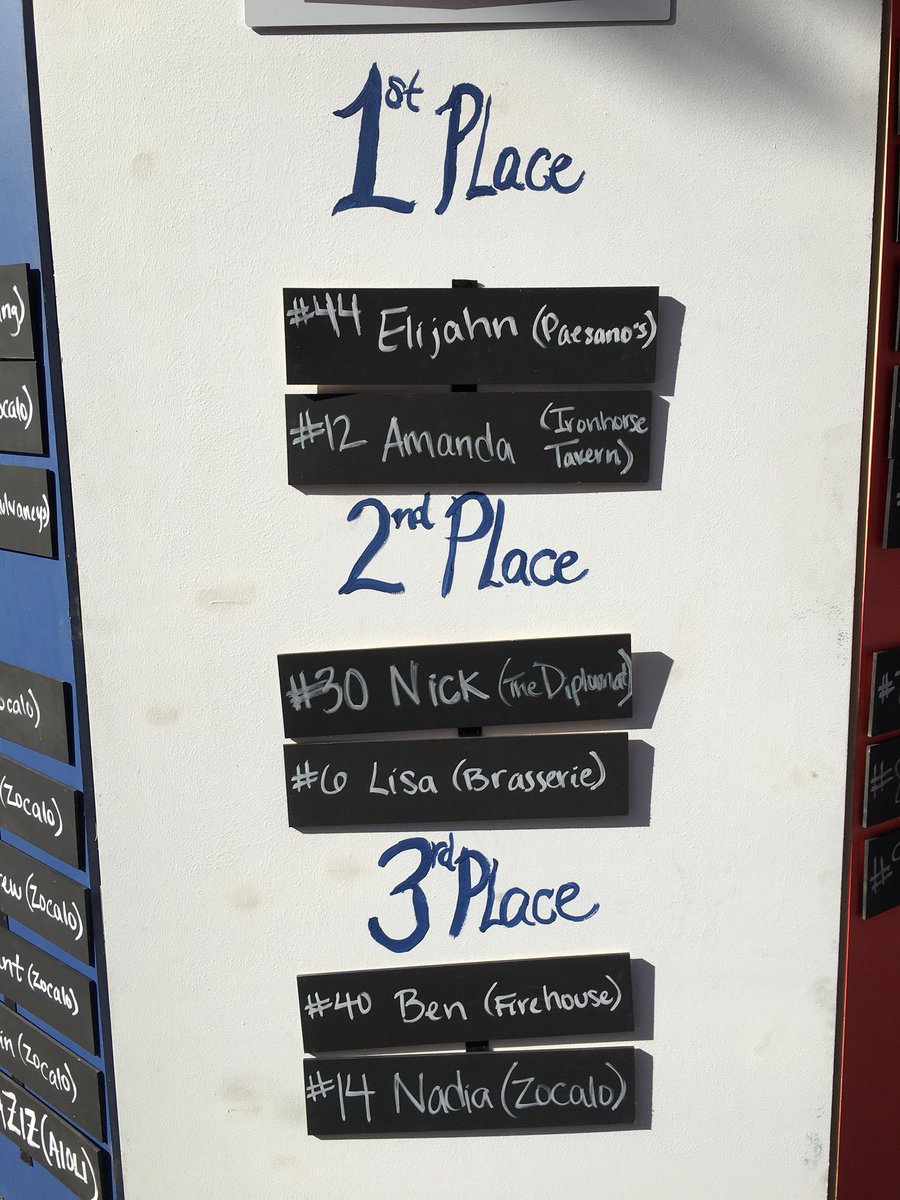 1st Place
#44 Elijahn (Paesano's)
#12 Amanda (Ironhorse
Tavern)
2nd Place
#30 Nick (The Diplomat)
#6 Lisa (Brasserie)
3rd Place
#40 Ben (Firehouse)
#14 Nadia (Zocalo)
(Zocalo)
(Zocalo)
(Zocalo)
(Zocalo)
AZIZ (AIOLI)
#
#
#